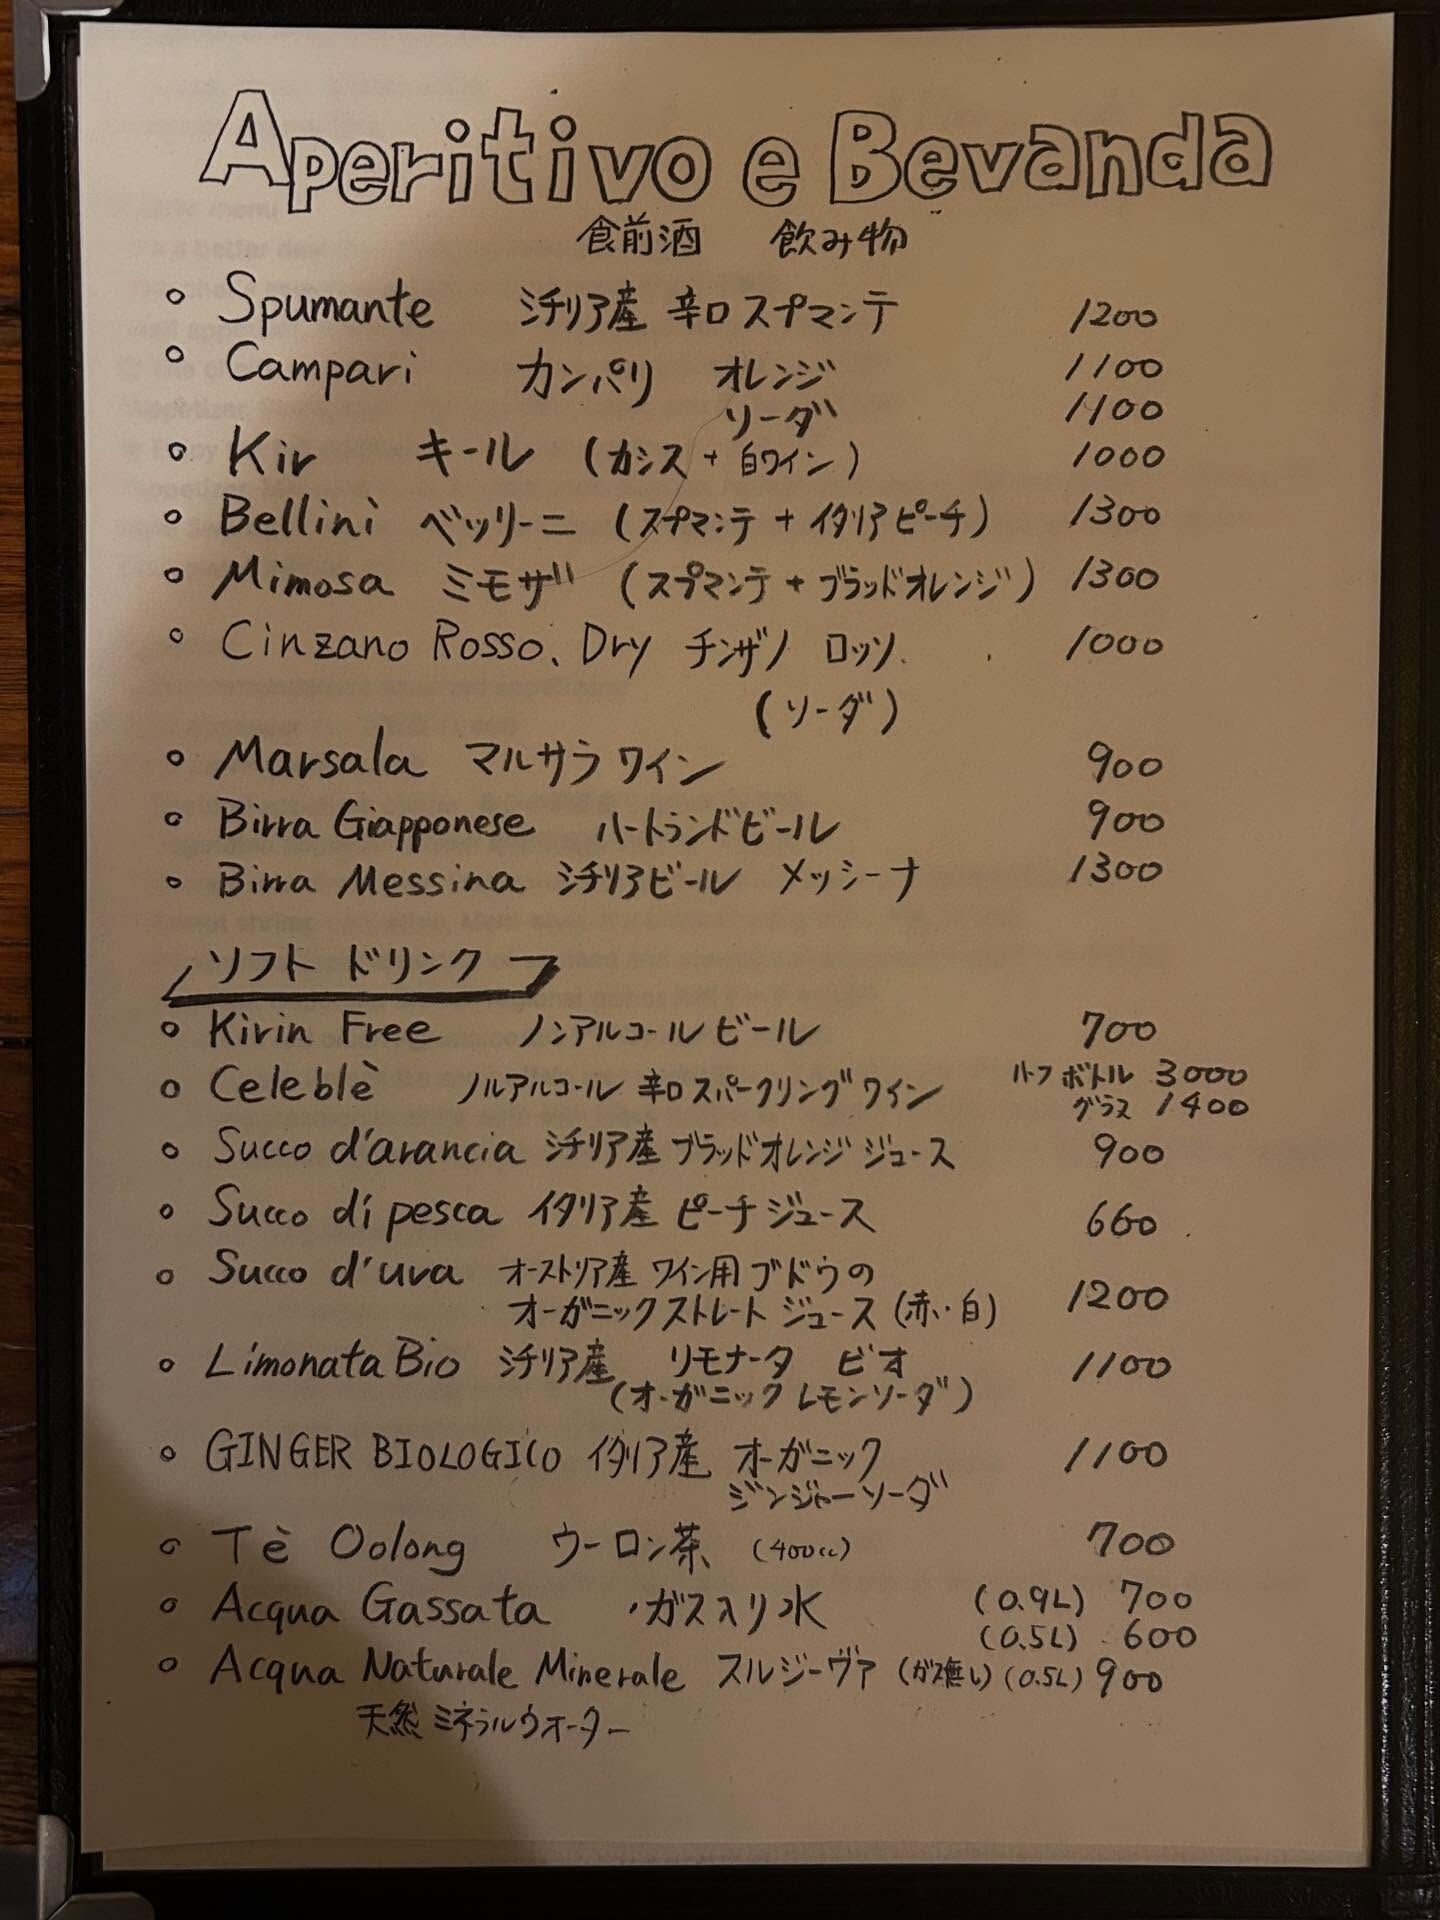 Aperitivo e Bevanda
食前酒 飲み物
○ Spumante シチリア産 辛口 スプマンテ 1200
○ Campari カンパリ オレンジ 1100
ソーダ 1100
○ Kir キール (カシス + 白ワイン) 1000
○ Bellini ベッリーニ (スプマンテ + イタリアピーチ) 1300
○ Mimosa ミモザ (スプマンテ + ブラッドオレンジ) 1300
○ Cinzano Rosso、Dry チンザノ ロッソ 1000
(ソーダ)
○ Marsala マルサラ ワイン 900
○ Birra Giapponese ハートランドビール 900
○ Birra Messina シチリアビール メッシーナ 1300
ソフト ドリンク
○ Kirin Free ノンアルコールビール 700
○ Celeblè ノルアルコール 辛口スパークリングワイン ハーフボトル 3000
グラス 1400
○ Succo d'arancia シチリア産 ブラッドオレンジ ジュース 900
○ Succo di pesca イタリア産 ピーチジュース 660
○ Succo d'uva オーストリア産 ワイン用 ブドウの
オーガニックストレート ジュース (赤・白) 1200
○ Limonata Bio シチリア産 リモナータ ビオ 1100
(オーガニック レモンソーダ)
○ GINGER BIOLOGICO イタリア産 オーガニック 1100
ジンジャーソーダ
○ Tè Oolong ウーロン茶 (400cc) 700
○ Acqua Gassata ・ガス入り水 (0.9L) 700
(0.5L) 600
○ Acqua Naturale Minerale スルジーヴァ (ガス無し) (0.5L) 900
天然 ミネラルウォーター